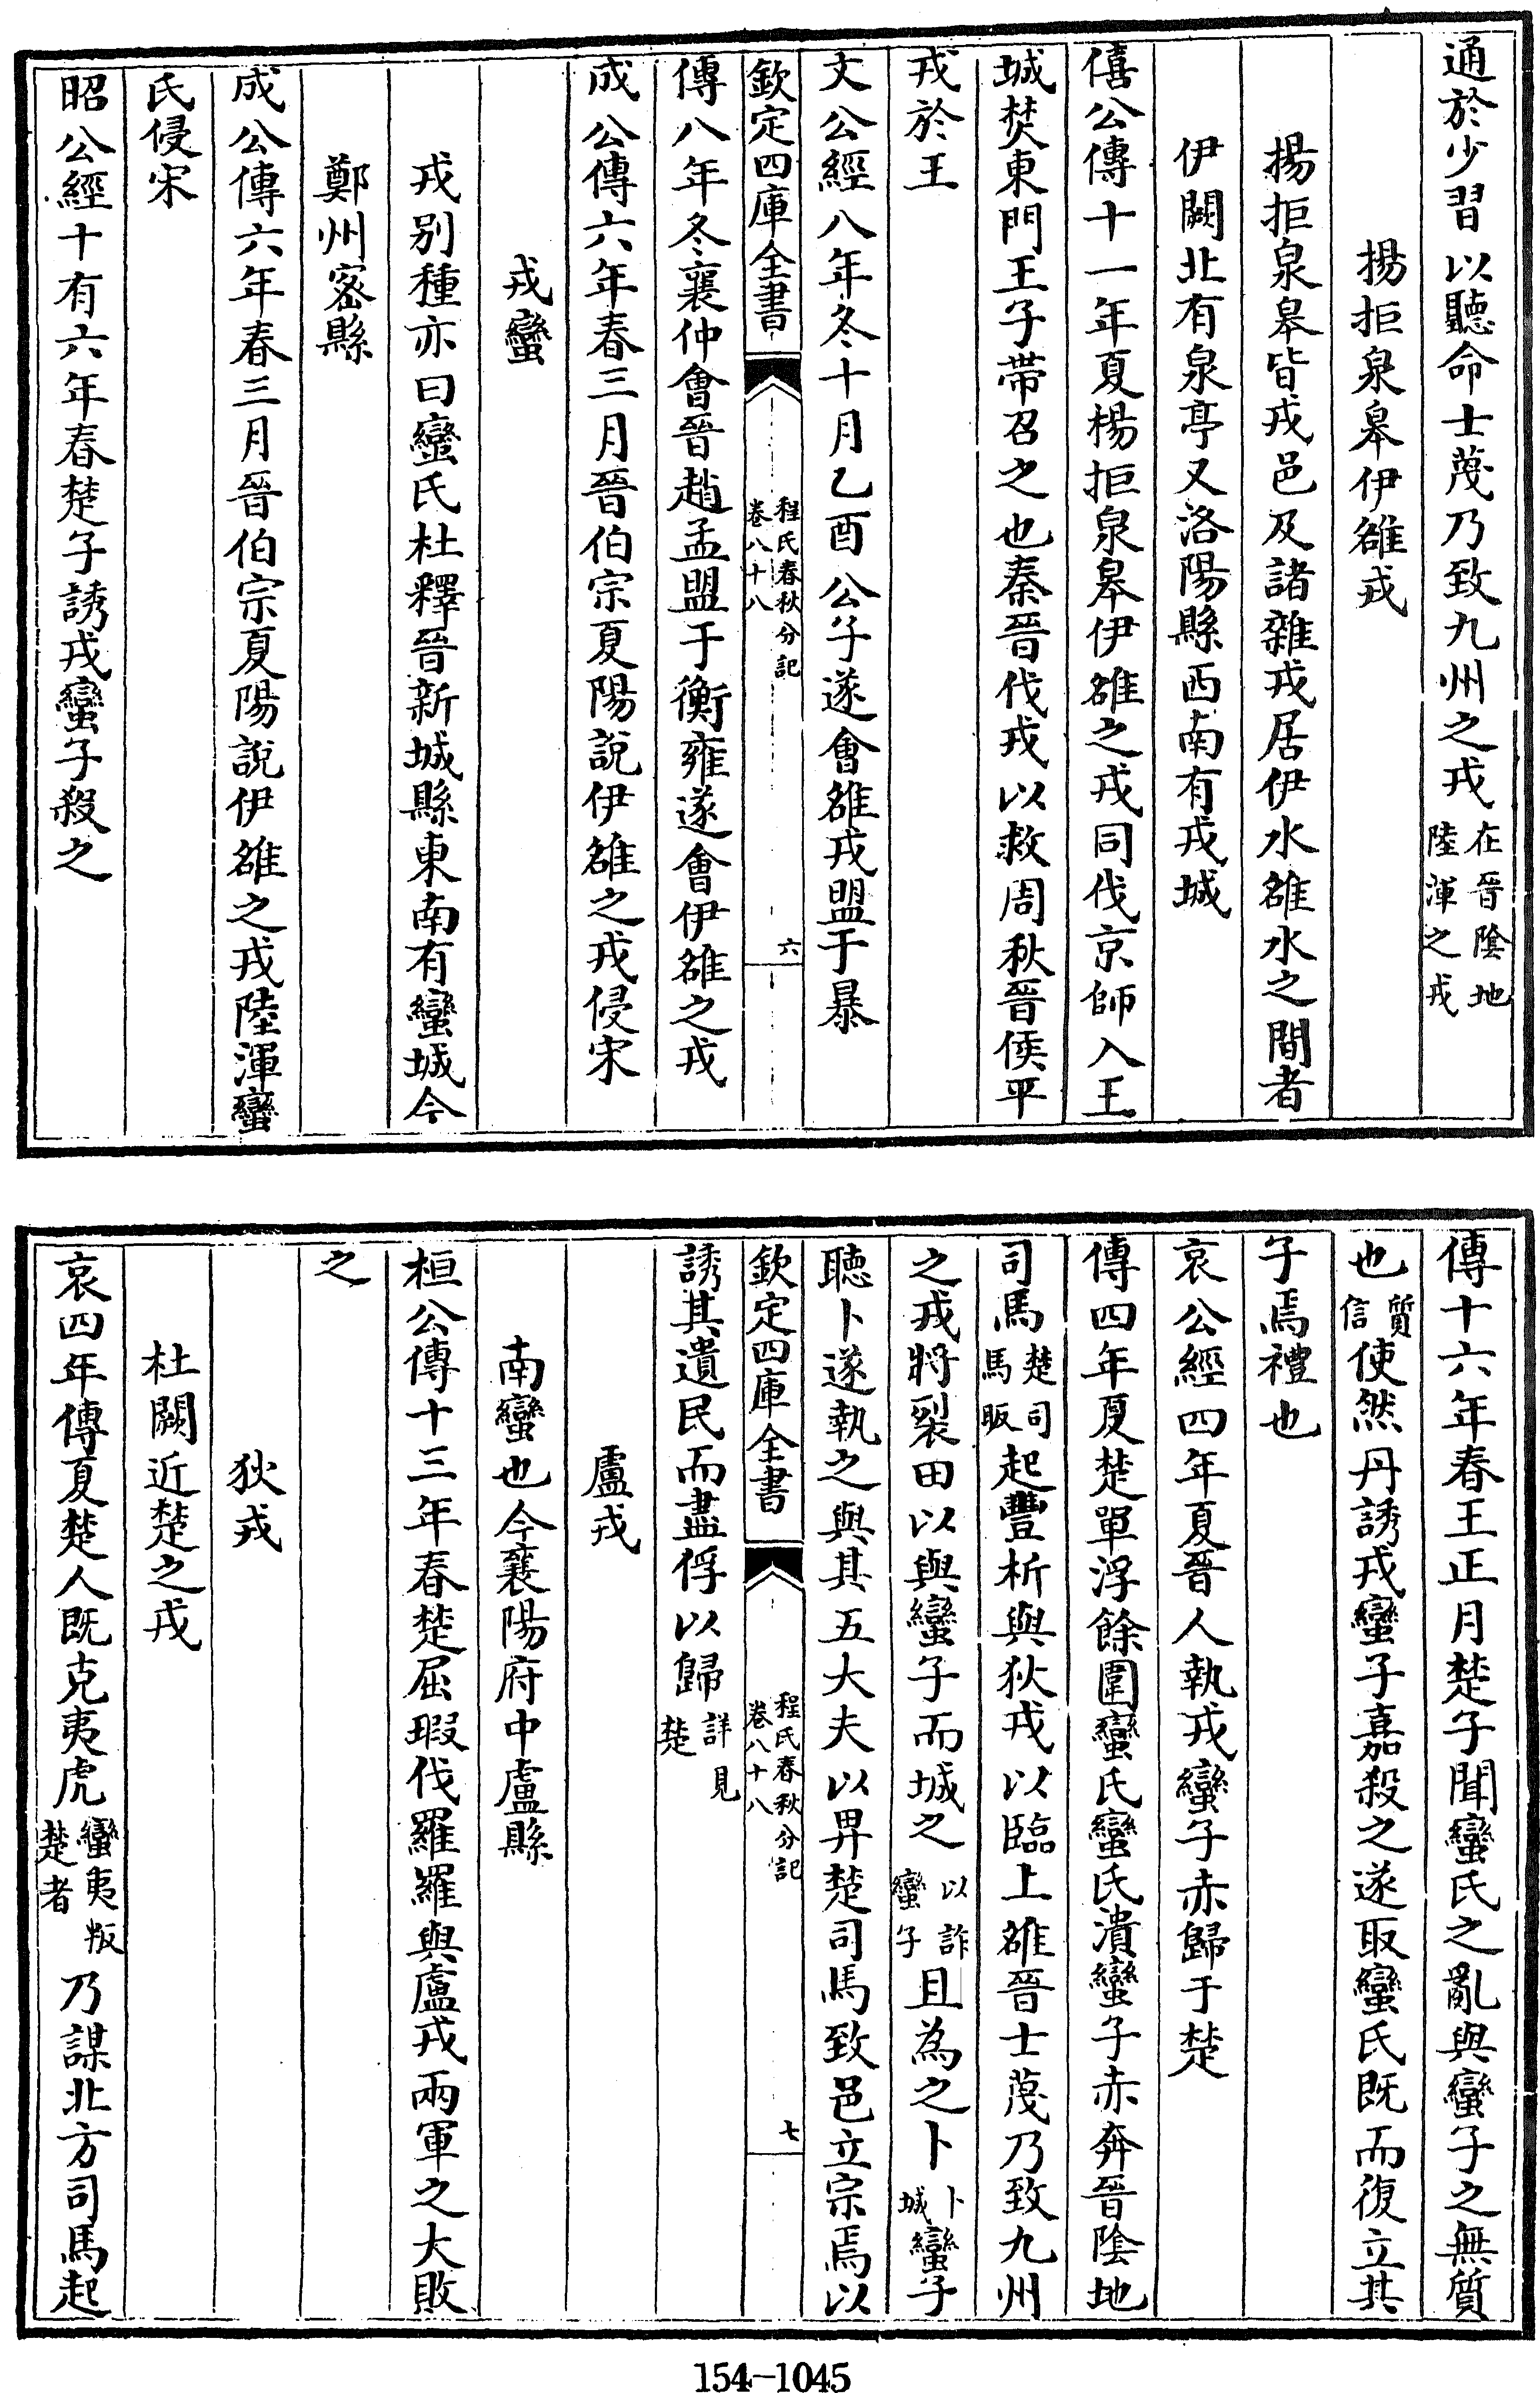 通於少習以聽命士蔑乃致九州之戎在晉隂地陸渾之戎
揚拒泉皋伊雒戎
揚拒泉皋皆戎邑及諸雜戎居伊水雒水之間者
伊闕北有泉亭又洛陽縣西南有戎城
僖公傳十一年夏楊拒泉皋伊雒之戎同伐京師入王
城焚東門王子帶召之也秦晉伐戎以救周秋晉侯平
戎於王
文公經八年冬十月乙酉公子遂會雒戎盟于暴
欽定四庫全書
程氏春秋分記
卷八十八
六
傳八年冬襄仲會晉趙孟盟于衡雍遂會伊雒之戎
成公傳六年春三月晉伯宗夏陽說伊雒之戎侵宋
戎蠻
戎别種亦曰蠻氏杜釋晉新城縣東南有蠻城今
鄭州密縣
成公傳六年春三月晉伯宗夏陽說伊雒之戎陸渾蠻
氏侵宋
昭公經十有六年春楚子誘戎蠻子殺之
傳十六年春王正月楚子聞蠻氏之亂與蠻子之無質
也質信使然丹誘戎蠻子嘉殺之遂取蠻氏既而復立其
子焉禮也
哀公經四年夏晉人執戎蠻子赤歸于楚
傳四年夏楚單浮餘圍蠻氏蠻氏潰蠻子赤奔晉隂地
司馬楚司馬販起豐析與狄戎以臨上雒晉士蔑乃致九州
之戎將裂田以與蠻子而城之以詐蠻子且為之卜卜城蠻子
聽卜遂執之與其五大夫以畀楚司馬致邑立宗焉以
欽定四庫全書
程氏春秋分記
卷八十八
七
誘其遺民而盡俘以歸詳見楚
盧戎
南蠻也今襄陽府中盧縣
桓公傳十三年春楚屈瑕伐羅羅與盧戎兩軍之大敗
之
狄戎
杜闕近楚之戎
哀四年傳夏楚人既克夷虎蠻夷叛楚者乃謀北方司馬起
154-1045